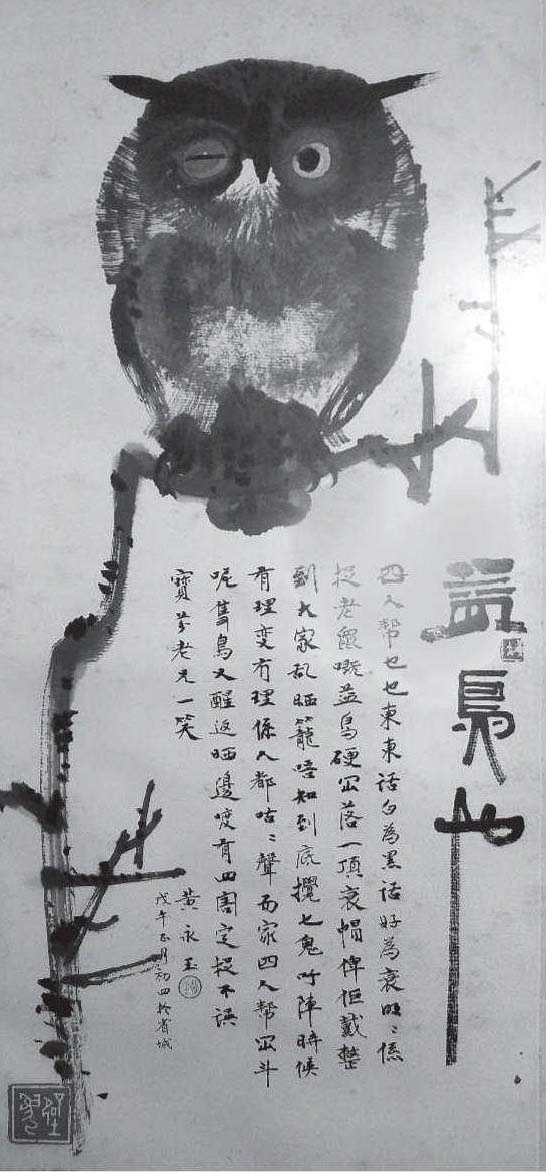 益鳥也
四人帮乜乜東東話白為黑話好為衰明々係
捉老鼠嘅益鳥硬冚落一頂衰帽俾佢戴整
到大家乱晒籠唔知到底攪乜鬼吖陣時候
有理变冇理係人都咕々聲而家四人帮冚斗
呢隻鳥又醒返晒邊度有四害定捉不誤
寶芬老兄一笑
黄永玉
戊午正月初四於省城